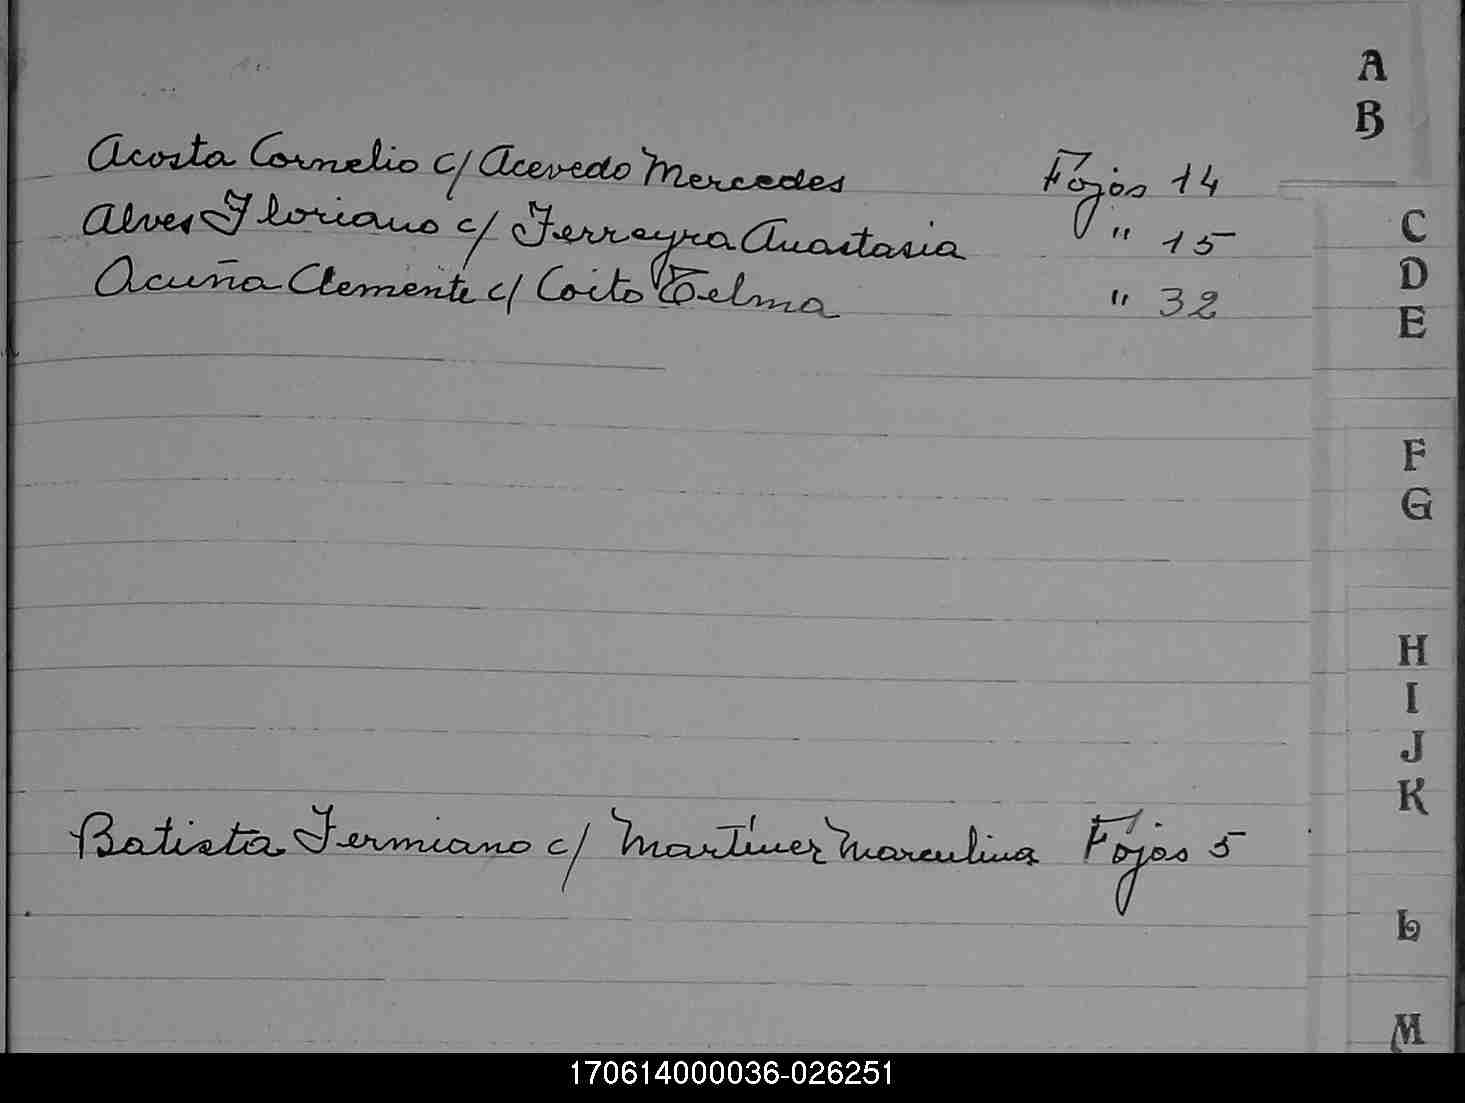 A
B
Acosta Cornelio c/ Acevedo Mercedes Fojas 14
Alves Floriano c/ Ferreyra Anastasia " 15
Acuña Clemente c/ Coito Telma " 32
C
D
E
F
G
H
I
J
K
Batista Fermiano c/ Martínez Marculina Fojas 5
L
M
170614000036-026251